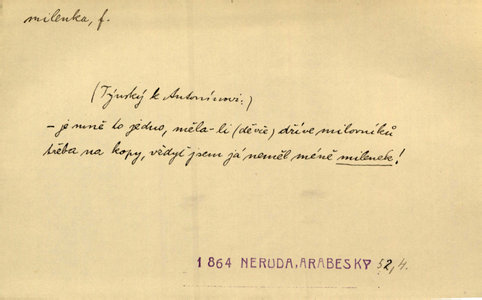 milenka, f.
(Týnský k Antonínovi:)
– je mně to jedno, měla-li (děvče) dříve milovníků
třeba na kopy, vědyť jsem já neměl méně milenek!
1864 NERUDA, ARABESKY 52, 4.